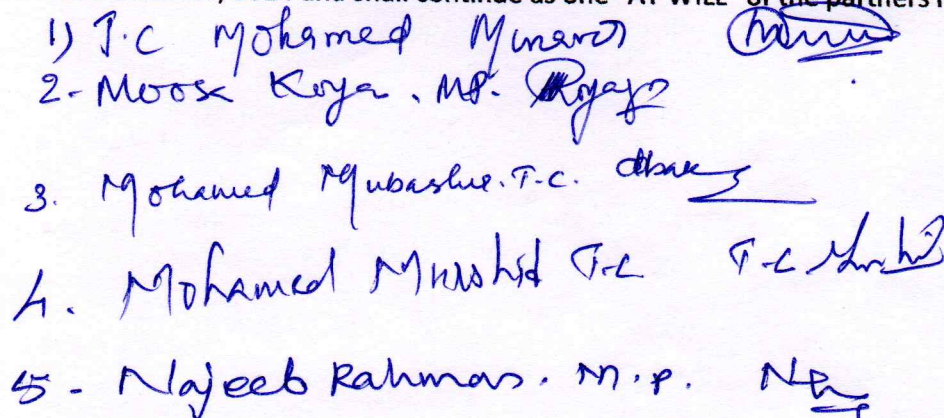 and shall continue as one "AT WILL" of the partners
1) T.C Mohamed
2- Moosa Koya. MP.
3. Mohamed Mubashir. T.C.
4. Mohamed Murshid T.C T.C
5- Najeeb Rahman. M.P.